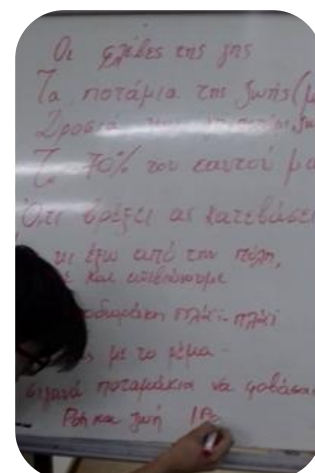 Οι φλέβες της γης
Τα ποτάμια της ζωής (μ
Δροσιά
Το 70% του εαυτού μα
Ότι βρέξει ας κατεβάσει
κι έξω από την πόλη,
και επιβιώνουμε
πλάι-πλάι
με το ρέμα
σιγανά ποταμάκια να φοβάσαι
Ροή και ζωή | Ρο